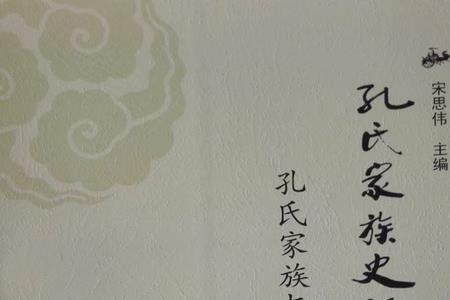 宋思伟 主编
孔氏家族史
孔氏家族